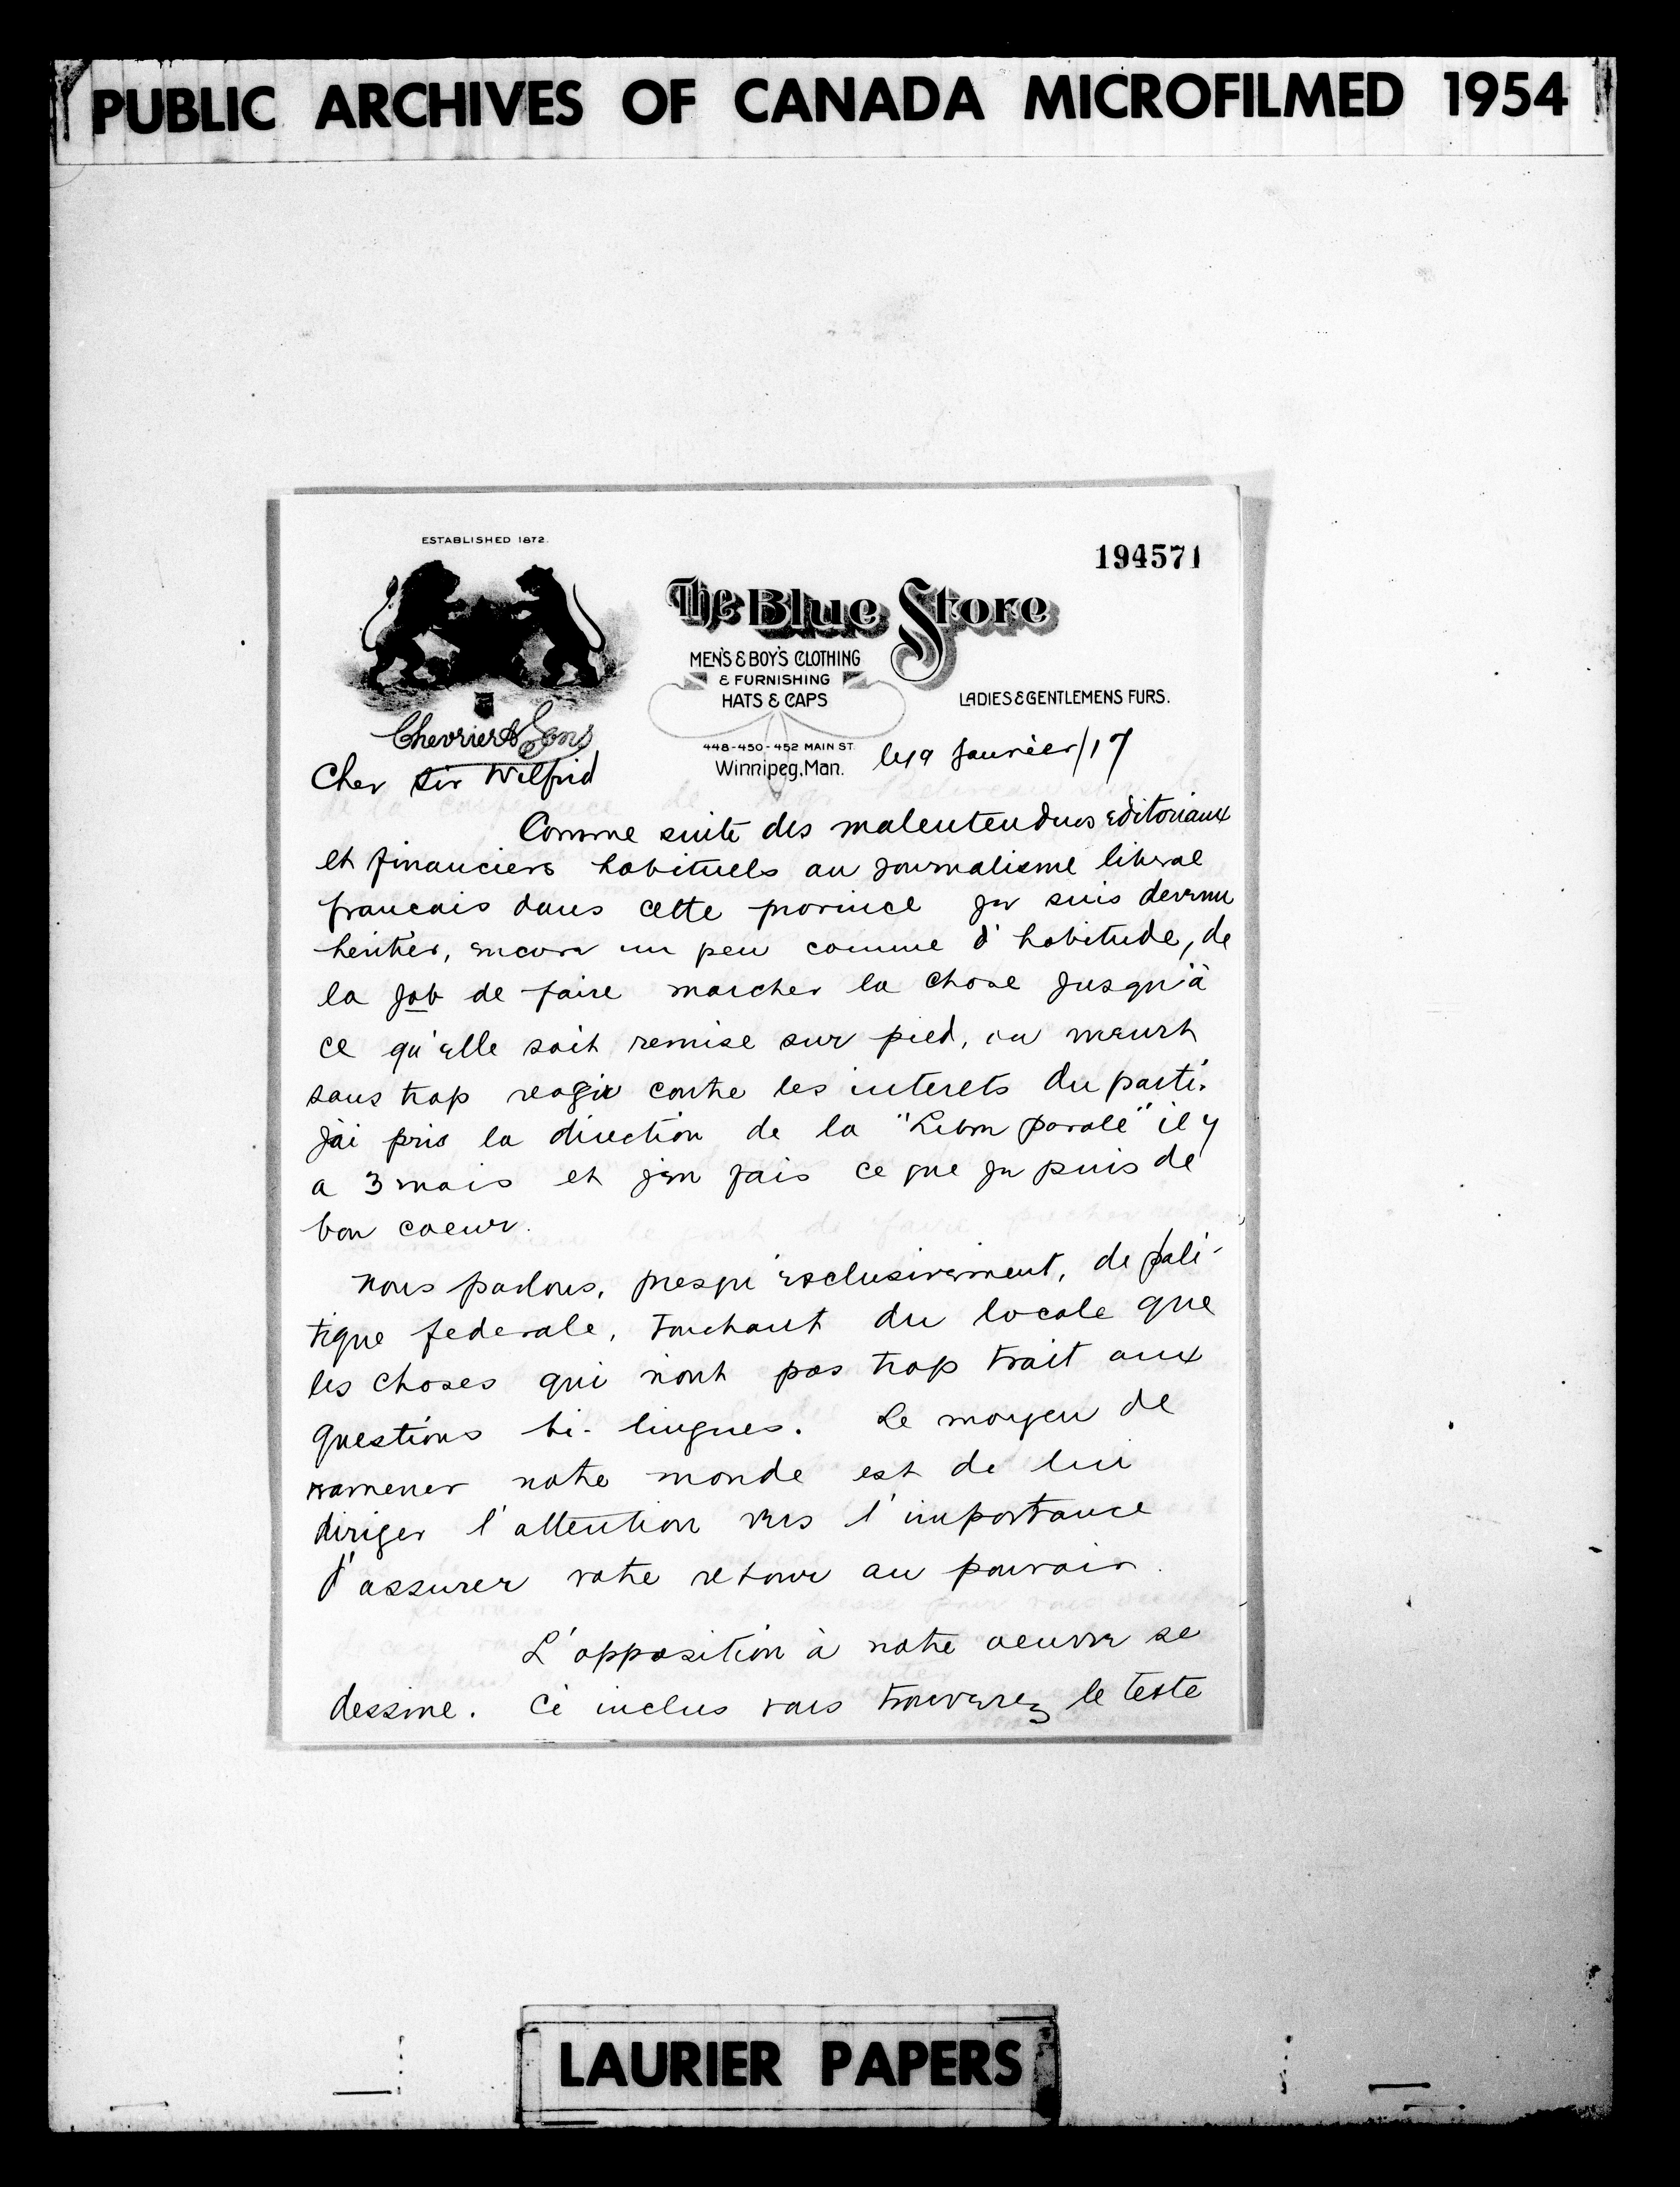 PUBLIC ARCHIVES OF CANADA MICROFILMED 1954
ESTABLISHED 1872.
194571
The Blue Store
MEN'S & BOY'S CLOTHING
& FURNISHING
HATS & CAPS
LADIES & GENTLEMENS FURS.
Chevrier & Sons
448-450-452 MAIN ST.
Winnipeg, Man. le 19 Janvier/17
Cher Sir Wilfrid
Comme suite des malentendus editoriaux
et financiers habituels au journalisme liberal
francais dans cette province je suis devenu
heritier, encore un peu comme d'habitude, de
la job de faire marcher la chose jusqu'à
ce qu'elle soit remise sur pied, ou meurt
sans trop reagir contre les interets du parti.
J'ai pris la direction de la "Libre parole" il y
a 3 mois et j'en fais ce que je puis de
bon coeur.
Nous parlons, presqu'exclusivement, de poli-
tique federale, touchant du locale que
les choses qui n'ont pas trop trait aux
questions bi-lingues. Le moyen de
ramener notre monde est de lui
diriger l'attention vers l'importance
d'assurer votre retour au pouvoir.
L'opposition à notre oeuvre se
dessine. Ci inclus vous trouverez le texte
LAURIER PAPERS